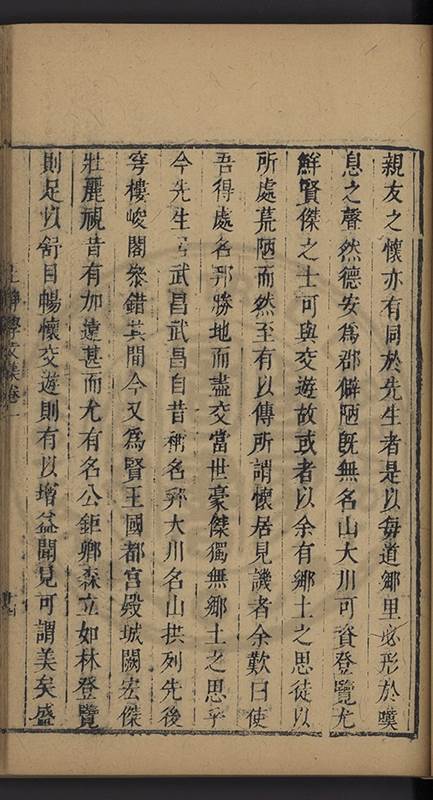 親友之懷亦有同於先生者是以每道鄉里必形於嘆
息之聲然德安爲郡僻陋旣無名山大川可資登覽尤
鮮賢傑之士可與交遊故或者以余有鄉土之思徒以
所處荒陋而然至有以傳所謂懷居見譏者余歎曰使
吾得處名邦勝地而盡交當世豪傑獨無鄉土之思乎
今先生官武昌武昌自昔稱名邦大川名山拱列先後
穹樓峻閣叅錯其間今又爲賢王國都宮殿城闕宏傑
壯麗視昔有加遠甚而尤有名公鉅卿森立如林登覽
則足以舒目暢懷交遊則有以增益聞見可謂美矣盛
王靜學文集卷一